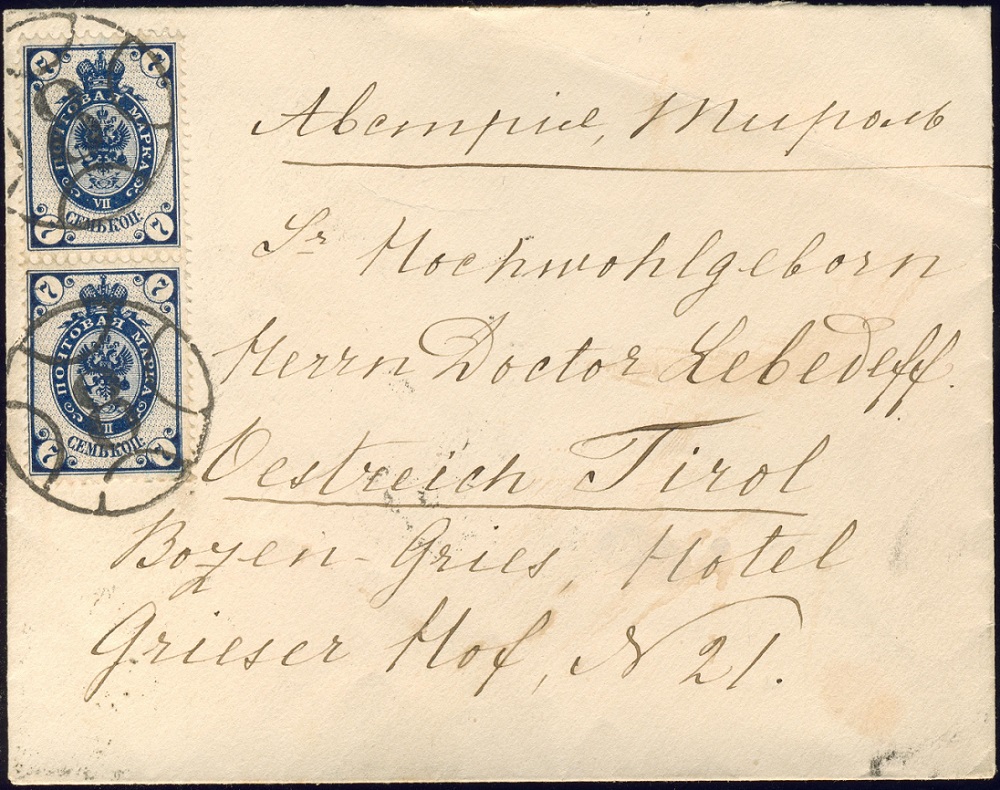 7 7
ПОЧТОВАЯ МАРКА
VII
СЕМЬ КОП.
7 7
7 7
ПОЧТОВАЯ МАРКА
VII
СЕМЬ КОП.
7 7
8
Австрія, Тироль
Sr Hochwohlgeborn
Herrn Doctor Lebedeff.
Oestreich Tirol
Bozen-Gries, Hotel
Grieser Hof, N 21.